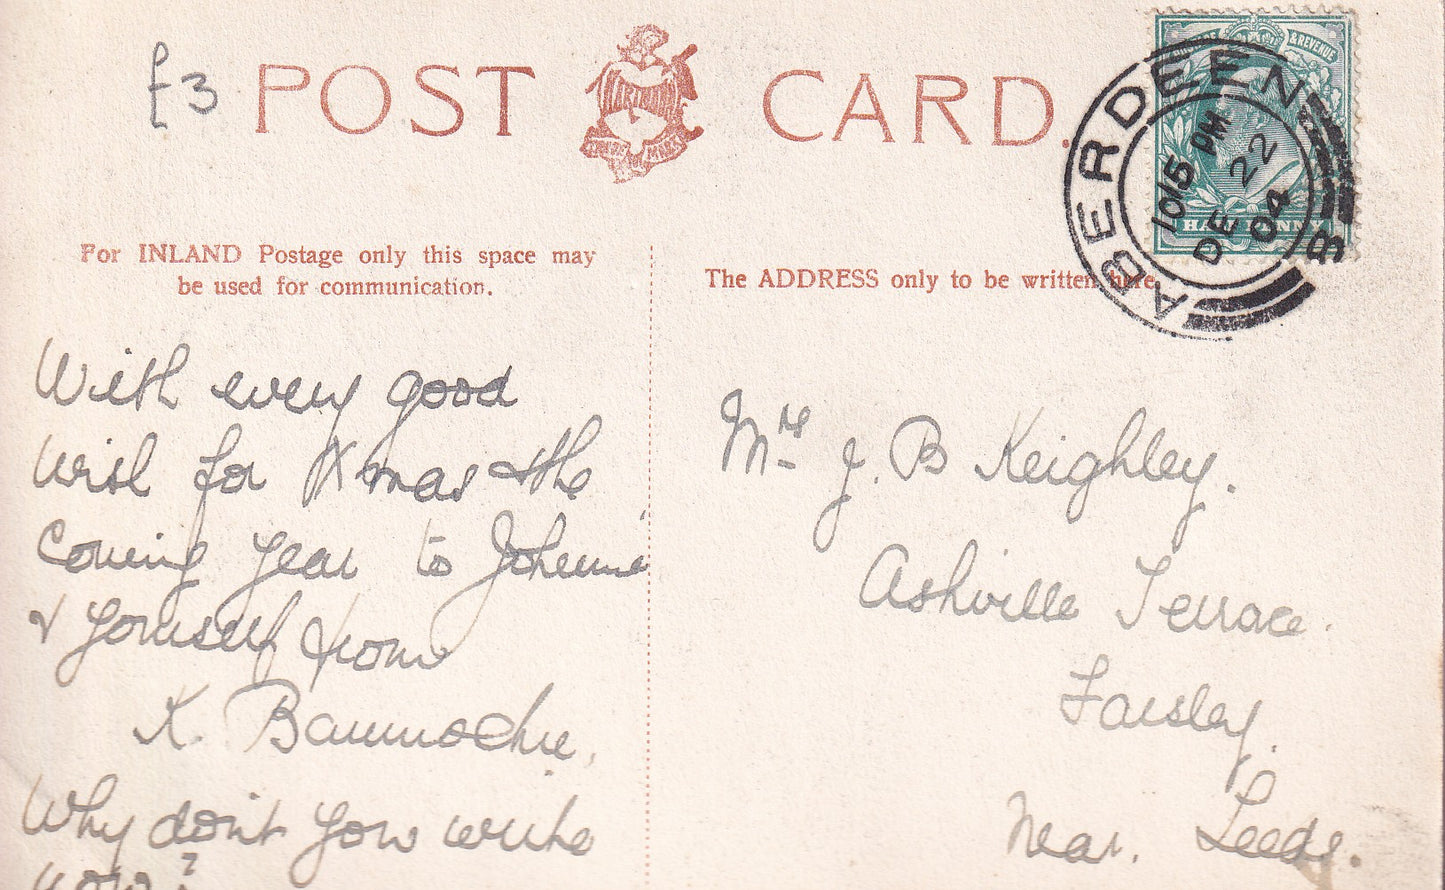 £3
POST CARD.
HARTMANN
TRADE MARK
POSTAGE & REVENUE
HALFPENNY
ABERDEEN
10 15 PM
DE 22
04
8
For INLAND Postage only this space may
be used for communication.
The ADDRESS only to be written here.
With every good
wish for Xmas & the
coming year to Johnnie
& yourself from
K. Bannochie.
Why don't you write
now?
Mrs J. B Keighley.
Ashville Terrace.
Farsley.
Near. Leeds.